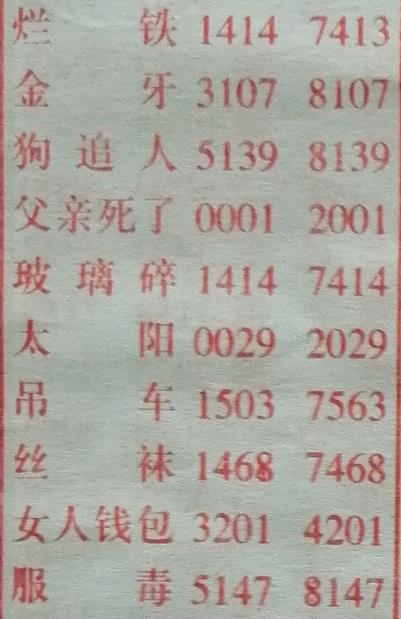 烂铁 1414 7413
金牙 3107 8107
狗追人 5139 8139
父亲死了 0001 2001
玻璃碎 1414 7414
太阳 0029 2029
吊车 1503 7563
丝袜 1468 7468
女人钱包 3201 4201
服毒 5147 8147